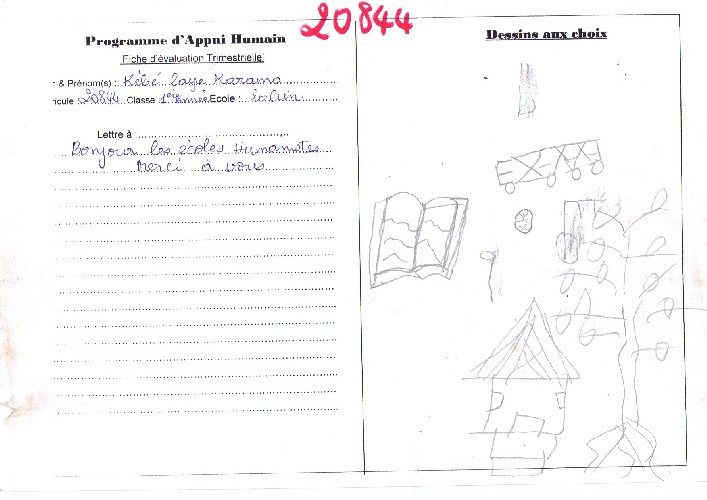 20844
Programme d'Appui Humain
Fiche d'évaluation Trimestrielle
r & Prénom(s) : Kébé Laye Karama
ricule 20844 Classe 1ère Année Ecole :
Lettre à :
Bonjour les écoles Humanistes
Merci à vous
Dessins aux choix